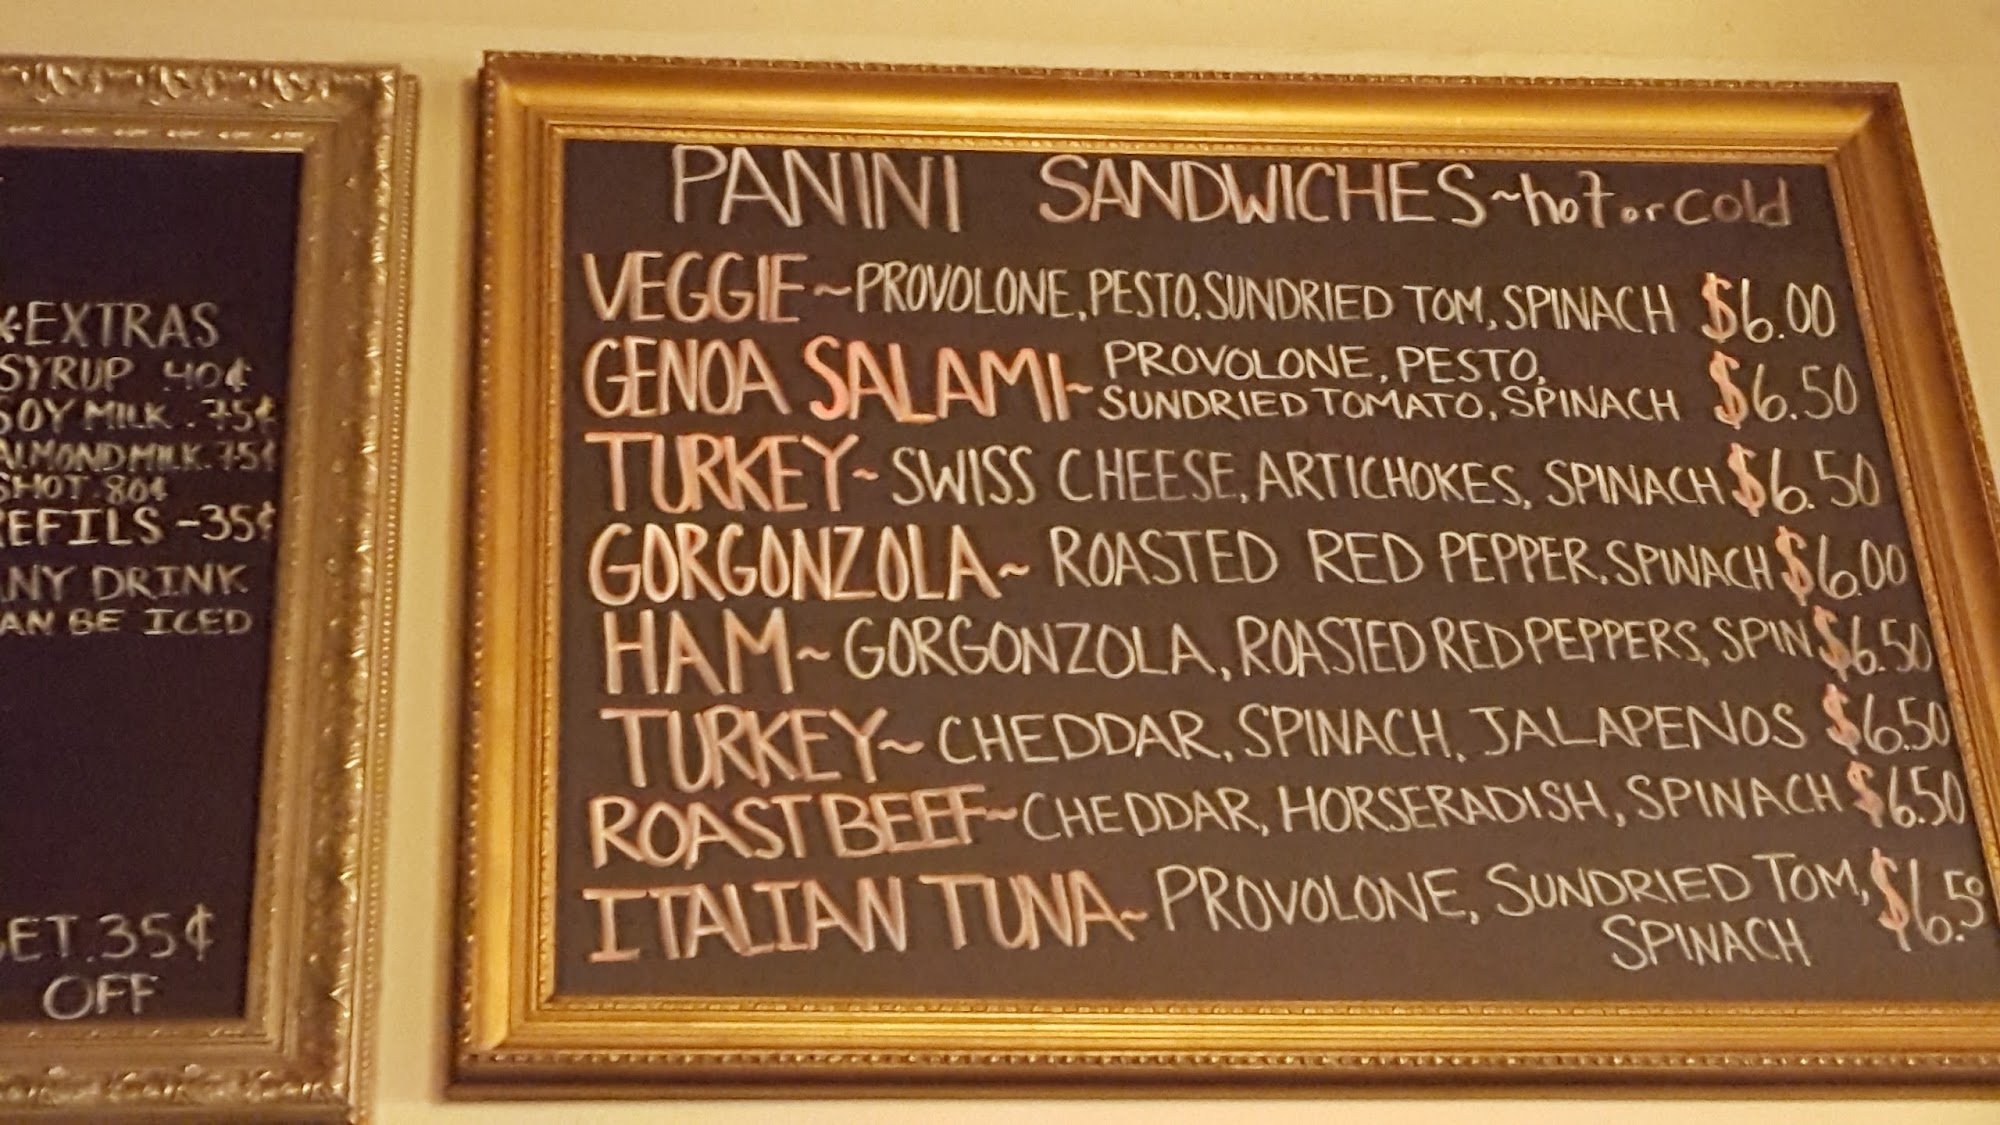 *EXTRAS
SYRUP .40¢
SOY MILK .75¢
ALMOND MILK .75¢
SHOT .80¢
REFILS -35¢
ANY DRINK
CAN BE ICED
35¢
OFF
PANINI SANDWICHES~hot or cold
VEGGIE~PROVOLONE, PESTO, SUNDRIED TOM, SPINACH $6.00
GENOA SALAMI~ PROVOLONE, PESTO,
SUNDRIED TOMATO, SPINACH $6.50
TURKEY~ SWISS CHEESE, ARTICHOKES, SPINACH $6.50
GORGONZOLA~ ROASTED RED PEPPER, SPINACH $6.00
HAM~ GORGONZOLA, ROASTED RED PEPPERS, SPIN $6.50
TURKEY~ CHEDDAR, SPINACH, JALAPENOS $6.50
ROAST BEEF~CHEDDAR, HORSERADISH, SPINACH $6.50
ITALIAN TUNA~ PROVOLONE, SUNDRIED TOM, $6.50
SPINACH